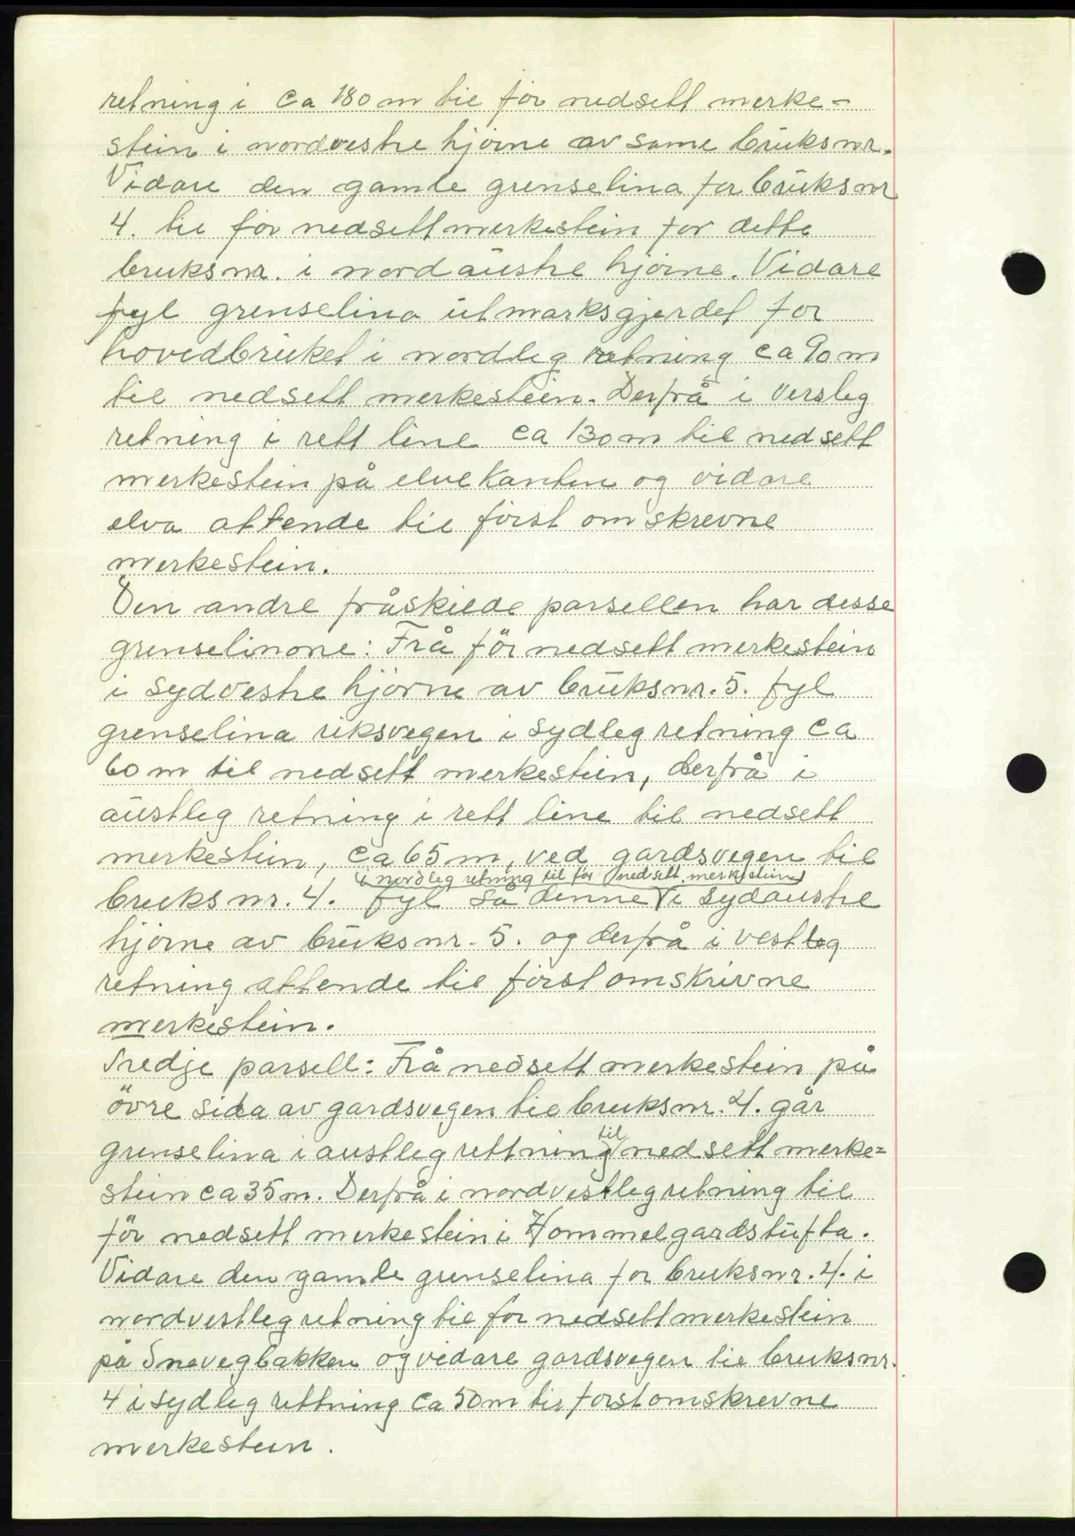 retning i ca 180 m til før nedsett merke-
stein i nordvestre hjørne av same bruksnr.
Vidare den gamle grenselina for bruksnr
4. til før nedsett merkestein for dette
bruksnr. i nordaustre hjørne. Vidare
fyl grenselina utmarksgjerdet for
hovedbruket i nordleg retning ca 90 m
til nedsett merkestein. Derfrå i versleg
retning i rett line ca 130 m til nedsett
merkestein på elvekanten og vidare
elva attende til først omskrevne
merkestein.
Den andre fråskilde parsellen har desse
grenselinone: Frå för nedsett merkestein
i sydvestre hjørne av bruksnr. 5. fyl
grenselina riksvegen i sydleg retning ca
60 m til nedsett merkestein, derfrå i
austleg retning i rett line til nedsett
merkestein, ca 65 m, ved gardsvegen til
i nordleg retning til før nedsett merkestein
bruksnr. 4. fyl så denne V i sydaustre
hjørne av bruksnr. 5. og derfrå i vestleg
retning attende til først omskrivne
merkestein.
Tredje parsell: Frå nedsett merkestein på
övre sida av gardsvegen til bruksnr. 4. går
grenselina i austleg rettning til nedsett merke=
stein ca 35 m. Derfrå i nordvestleg retning til
för nedsett merkestein i Hommelgardstufta.
Vidare den gamle grenselina for bruksnr. 4. i
nordvestleg retning til før nedsett merkestein
på Snevegbakken og vidare gardsvegen til bruksnr.
4 i sydleg rettning ca 50 m til først omskrevne
merkestein.